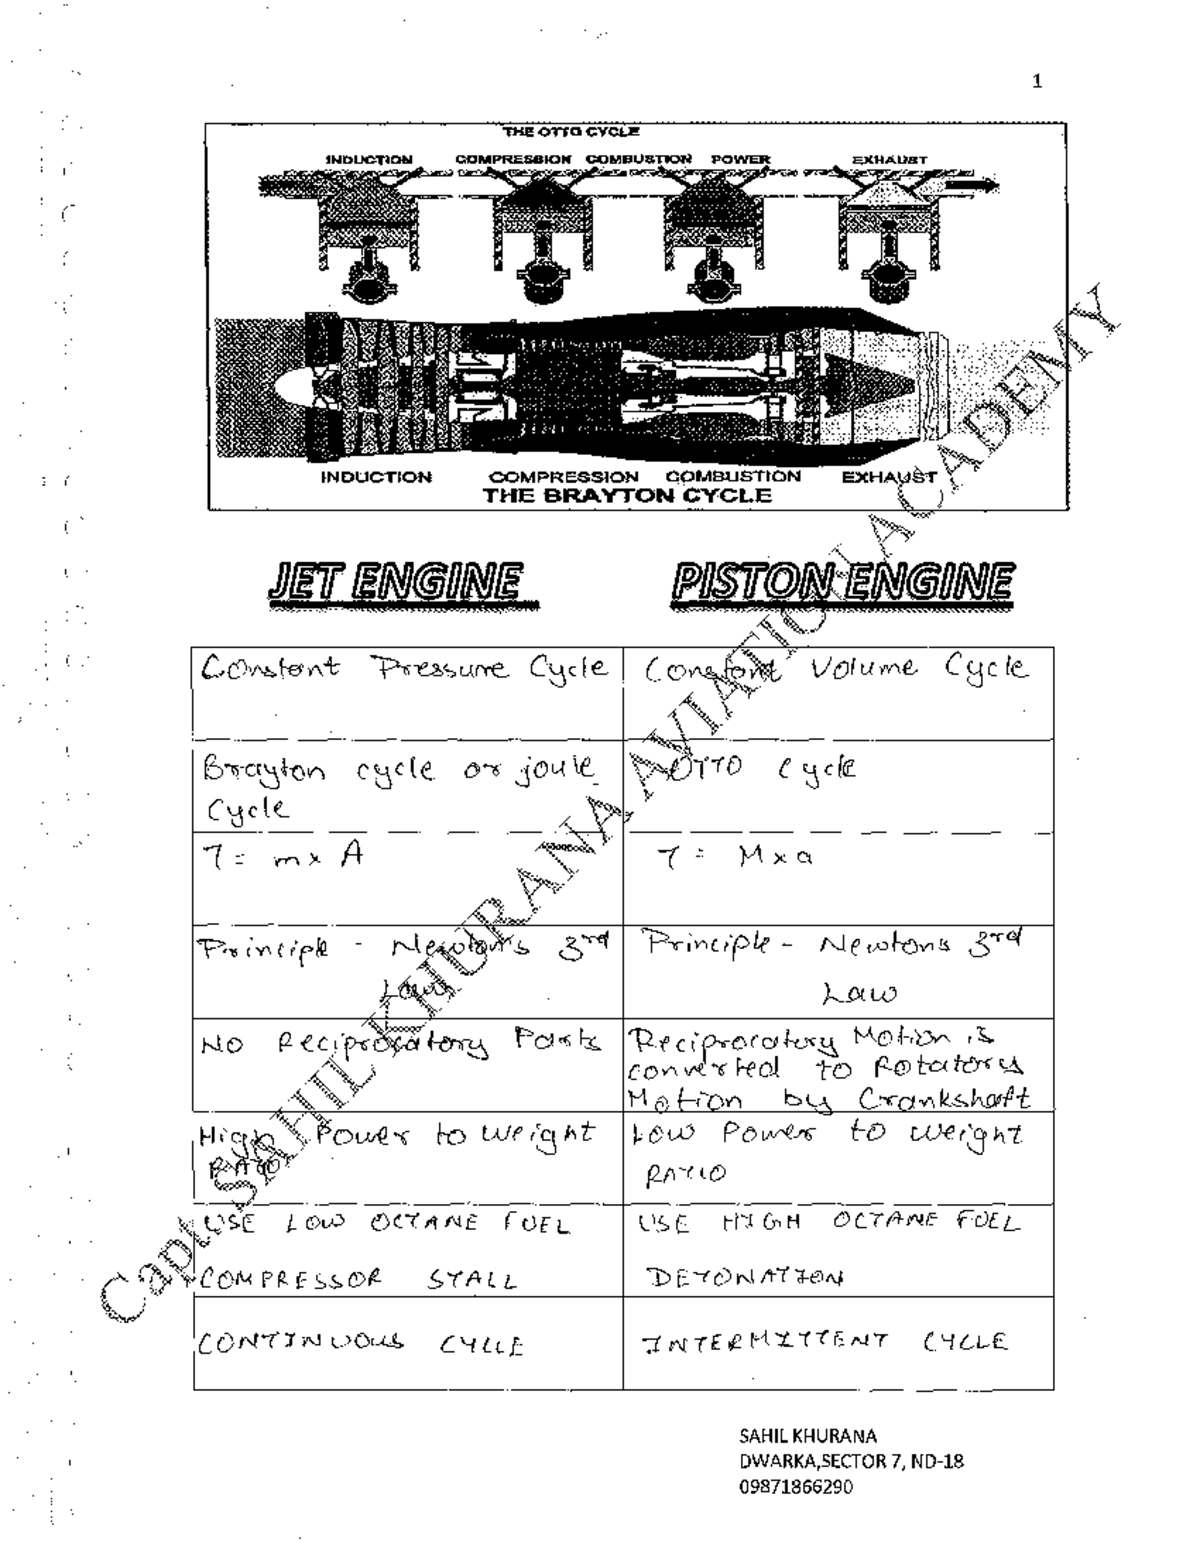 1
THE OTTO CYCLE
INDUCTION COMPRESSION COMBUSTION POWER EXHAUST
INDUCTION COMPRESSION COMBUSTION EXHAUST
THE BRAYTON CYCLE
JET ENGINE PISTON ENGINE
Constant Pressure Cycle
Constant Volume Cycle
Brayton cycle or joule
Cycle
OTTO Cycle
T = m x A
T = M x a
Principle - Newton's 3rd
Law
Principle - Newtons 3rd
Law
NO Reciprocatory Parts
Reciprocatory Motion is
converted to Rotatory
Motion by Crankshaft
High Power to Weight
RATIO
LOW Power to weight
RATIO
USE LOW OCTANE FUEL
COMPRESSOR STALL
USE HIGH OCTANE FUEL
DETONATION
CONTINUOUS CYCLE
INTERMITTENT CYCLE
Capt SAHIL KHURANA AVIATION ACADEMY
SAHIL KHURANA
DWARKA,SECTOR 7, ND-18
09871866290